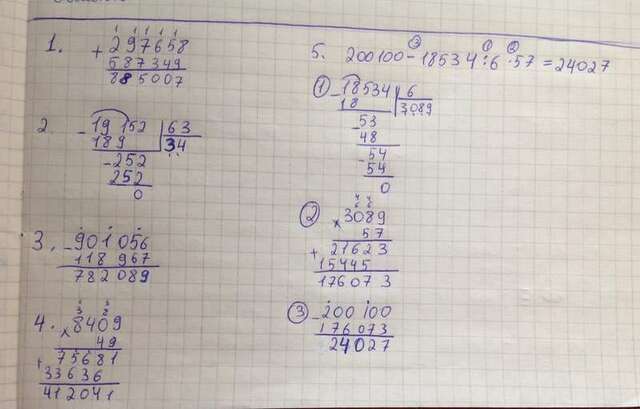 1. + 297658
587349
885007
2 - 19152 | 63
189 | 34
- 252
252
0
3. - 901056
118967
782089
4. × 8409
49
+ 75681
33636
412041
5. 200100 - 18534 : 6 · 57 = 24027
① - 18534 | 6
18 | 3089
- 53
48
- 54
54
0
② × 3089
57
+ 21623
15445
176073
③ - 200100
176073
24027